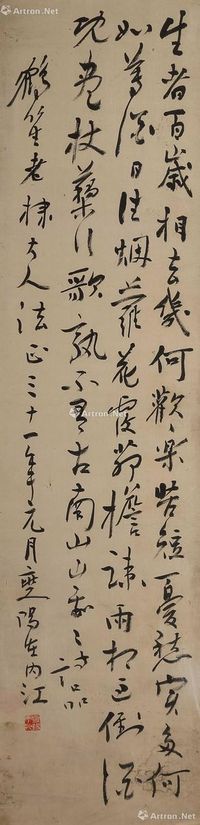 生者百歲相去幾何歡樂苦短憂愁實多何
如尊酒日往烟蘿花覆茆檐疎雨相過倒酒
既盡杖藜行歌孰不有古南山峩々詩品
鶴笙老棣大人法正三十一年元月陽在內江
Artron.Net
Artron.Net
Artron.Net
Artron.Net